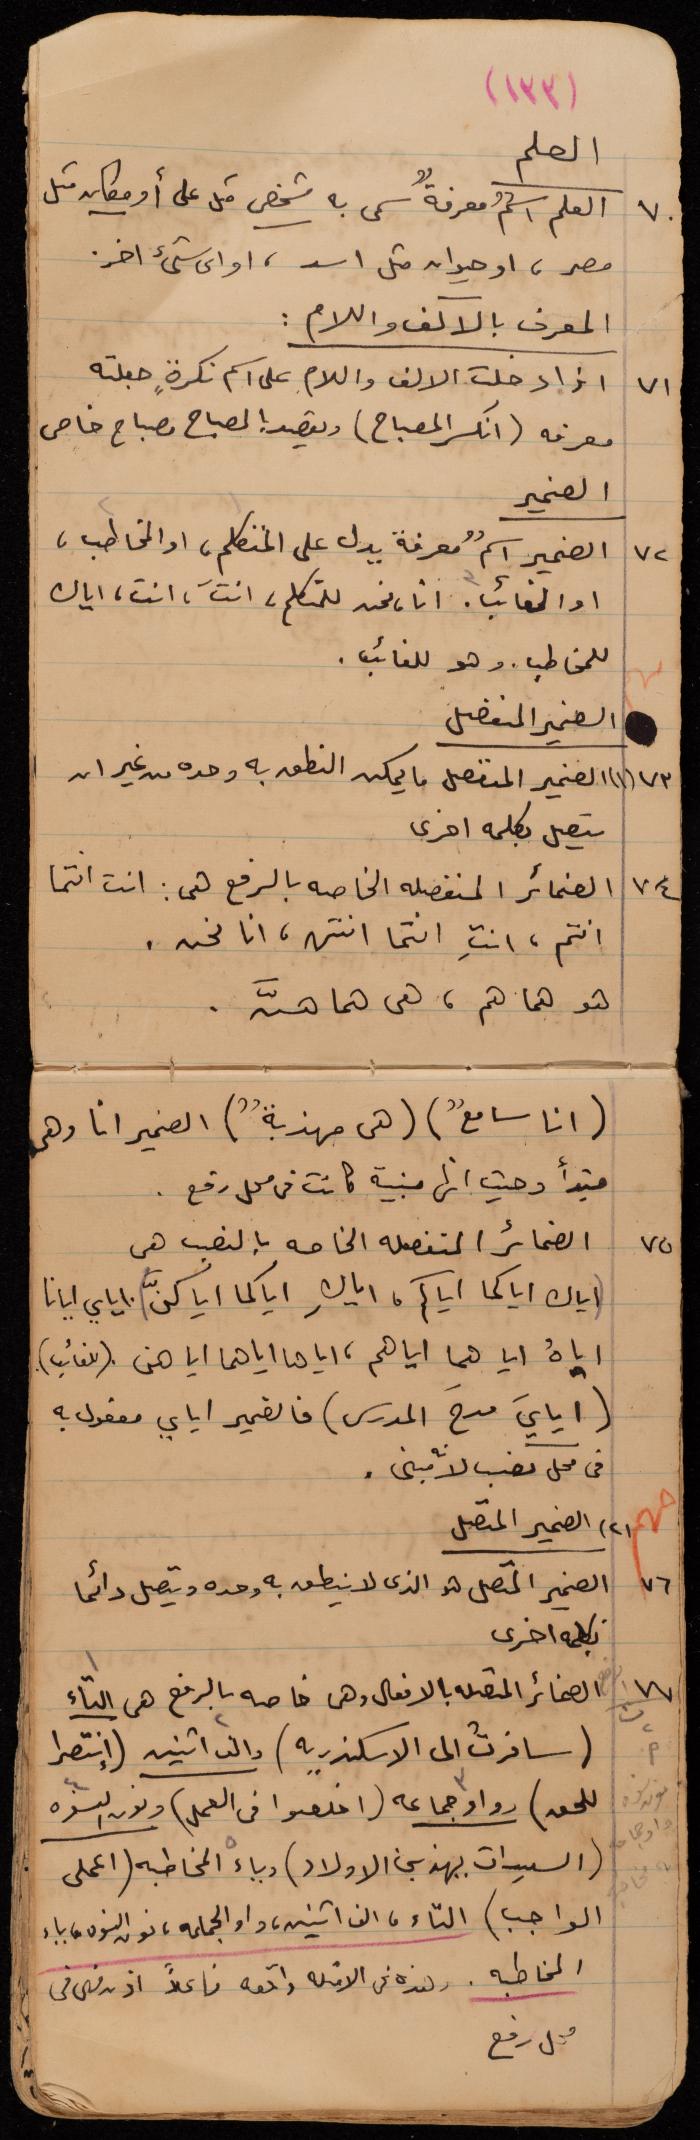 (١٣٣)
العلم
٧٠ العلم اسمٌ معرفةٌ سمى به شخص مثل على أو مكان مثل
مصر ، او حيوان مثل اسد ، او اى شئ اخر .
المعرف بالالف واللام :
٧١ اذا دخلت الالف واللام على اسم نكرةٍ جعلته
معرفه (انكسر المصباح) ويقصد بالمصباح مصباح خاص
الضمير
٧٢ الضمير اسمٌ معرفة يدل على المتكلم ، او المخاطب ،
او الغائب . انا ، نحن للمتكلم ، انتَ ، انت ، اياك
للمخاطب . وهو للغائب .
الضمير المنفصل
٧٣ (١) الضمير المنفصل ما يمكن النطق به وحده من غير ان
يتصل بكلمه اخرى
٧٤ الضمائر المنفصله الخاصه بالرفع هى : انت انتما
انتم ، انتِ انتما انتن ، انا نحن .
هو هما هم ، هى هما هنَّ .
(انا سامعٌ) (هى مهذبةٌ) الضمير انا وهى
مبتدأ وحيث انها مبنية كانت فى محل رفع .
٧٥ الضمائر المنفصله الخاصه بالنصب هى
(اياك اياكما اياكم ، اياكِ اياكما اياكنَّ) . اياي ايانا
اياهُ اياهما اياهم ، اياها اياهما اياهن . (للغائب) .
(ايايَ مدحَ المدرس) فالضمير اياي مفعول به
فى محل نصب لأنه مبنى .
مهم (٢) الضمير المتصل
٧٦ الضمير المتصل هو الذى لا ينطق به وحده ويتصل دائما
بكلمه اخرى
٧٧ الضمائر المتصله بالافعال وهى خاصه بالرفع هى التاء
(سافرتُ الى الاسكندريه) والف اثنين (إنتصرا
للحق) وواو جماعه (اخلصوا فى العمل) ونون النسوه
(السيدات يهذبن الاولاد) وياء المخاطبه (اعملى
الواجب) التاء ، الف اثنين ، واو الجماعه ، نون النسوه ، ياء
المخاطبه . وهذه فى الامثله واقعه فاعلاً اذن فهى فى
محل رفع